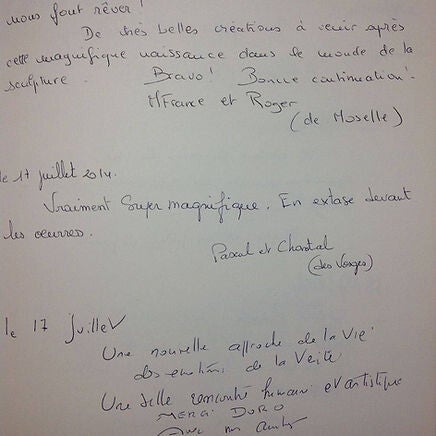 nous font rêver !
De très belles créations à venir après
cette magnifique naissance dans le monde de la
sculpture. Bravo! Bonne continuation!
MFrance et Roger
(de Moselle)
le 17 juillet 2014.
Vraiment super magnifique. En extase devant
les oeuvres.
Pascal et Chantal
(des Vosges)
le 17 Juillet
Une nouvelle approche de la Vie
des émotions de la Verité
Une belle rencontre humaine et artistique
MERCI DORO
Avec mon